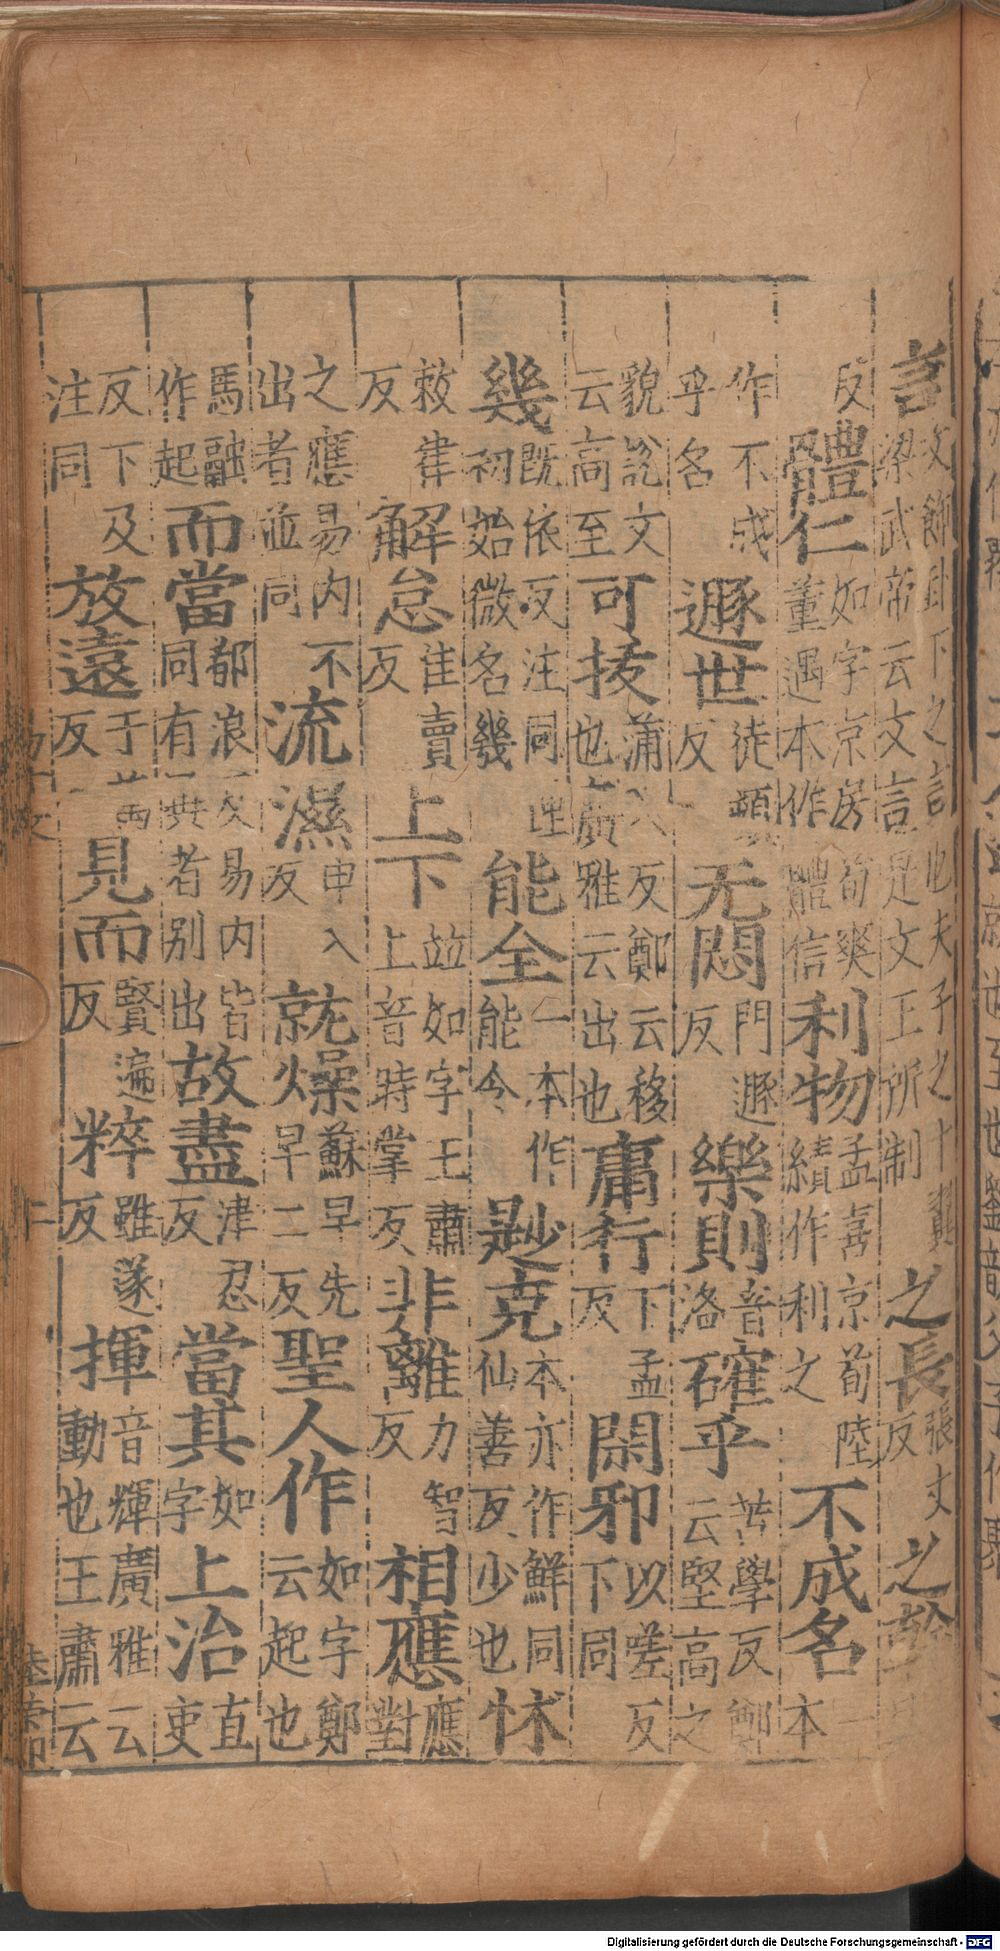 言文飾卦下之言也夫子之十翼梁武帝云文言是文王所制之長張丈反之幹
反體仁如字京房荀爽董遇本作體信利物孟喜京荀陸績作利之不成名一本
作不成乎名遯世徒頓反无悶門遯反樂則音洛確乎苦學反鄭云堅高之
貌說文云高至可拔蒲八反鄭云移也廣雅云出也庸行下孟反閑邪以嗟反下同
幾既依反注同理初始微名幾能全一本作能令尟克本亦作鮮同仙善反少也怵
敕律反解怠佳賣反上下竝如字王肅上音時掌反非離力智反相應應對
之應易内不出者並同流濕申入反就燥蘇早先早二反聖人作如字鄭云起也
馬融作起而當都浪反易内皆同有異者別出故盡津忍反當其如字上治直吏
反下及注同放遠于萬反見而賢遍反粹雖遂反揮音輝廣雅云動也王肅云
Digitalisierung gefördert durch die Deutsche Forschungsgemeinschaft - DFG